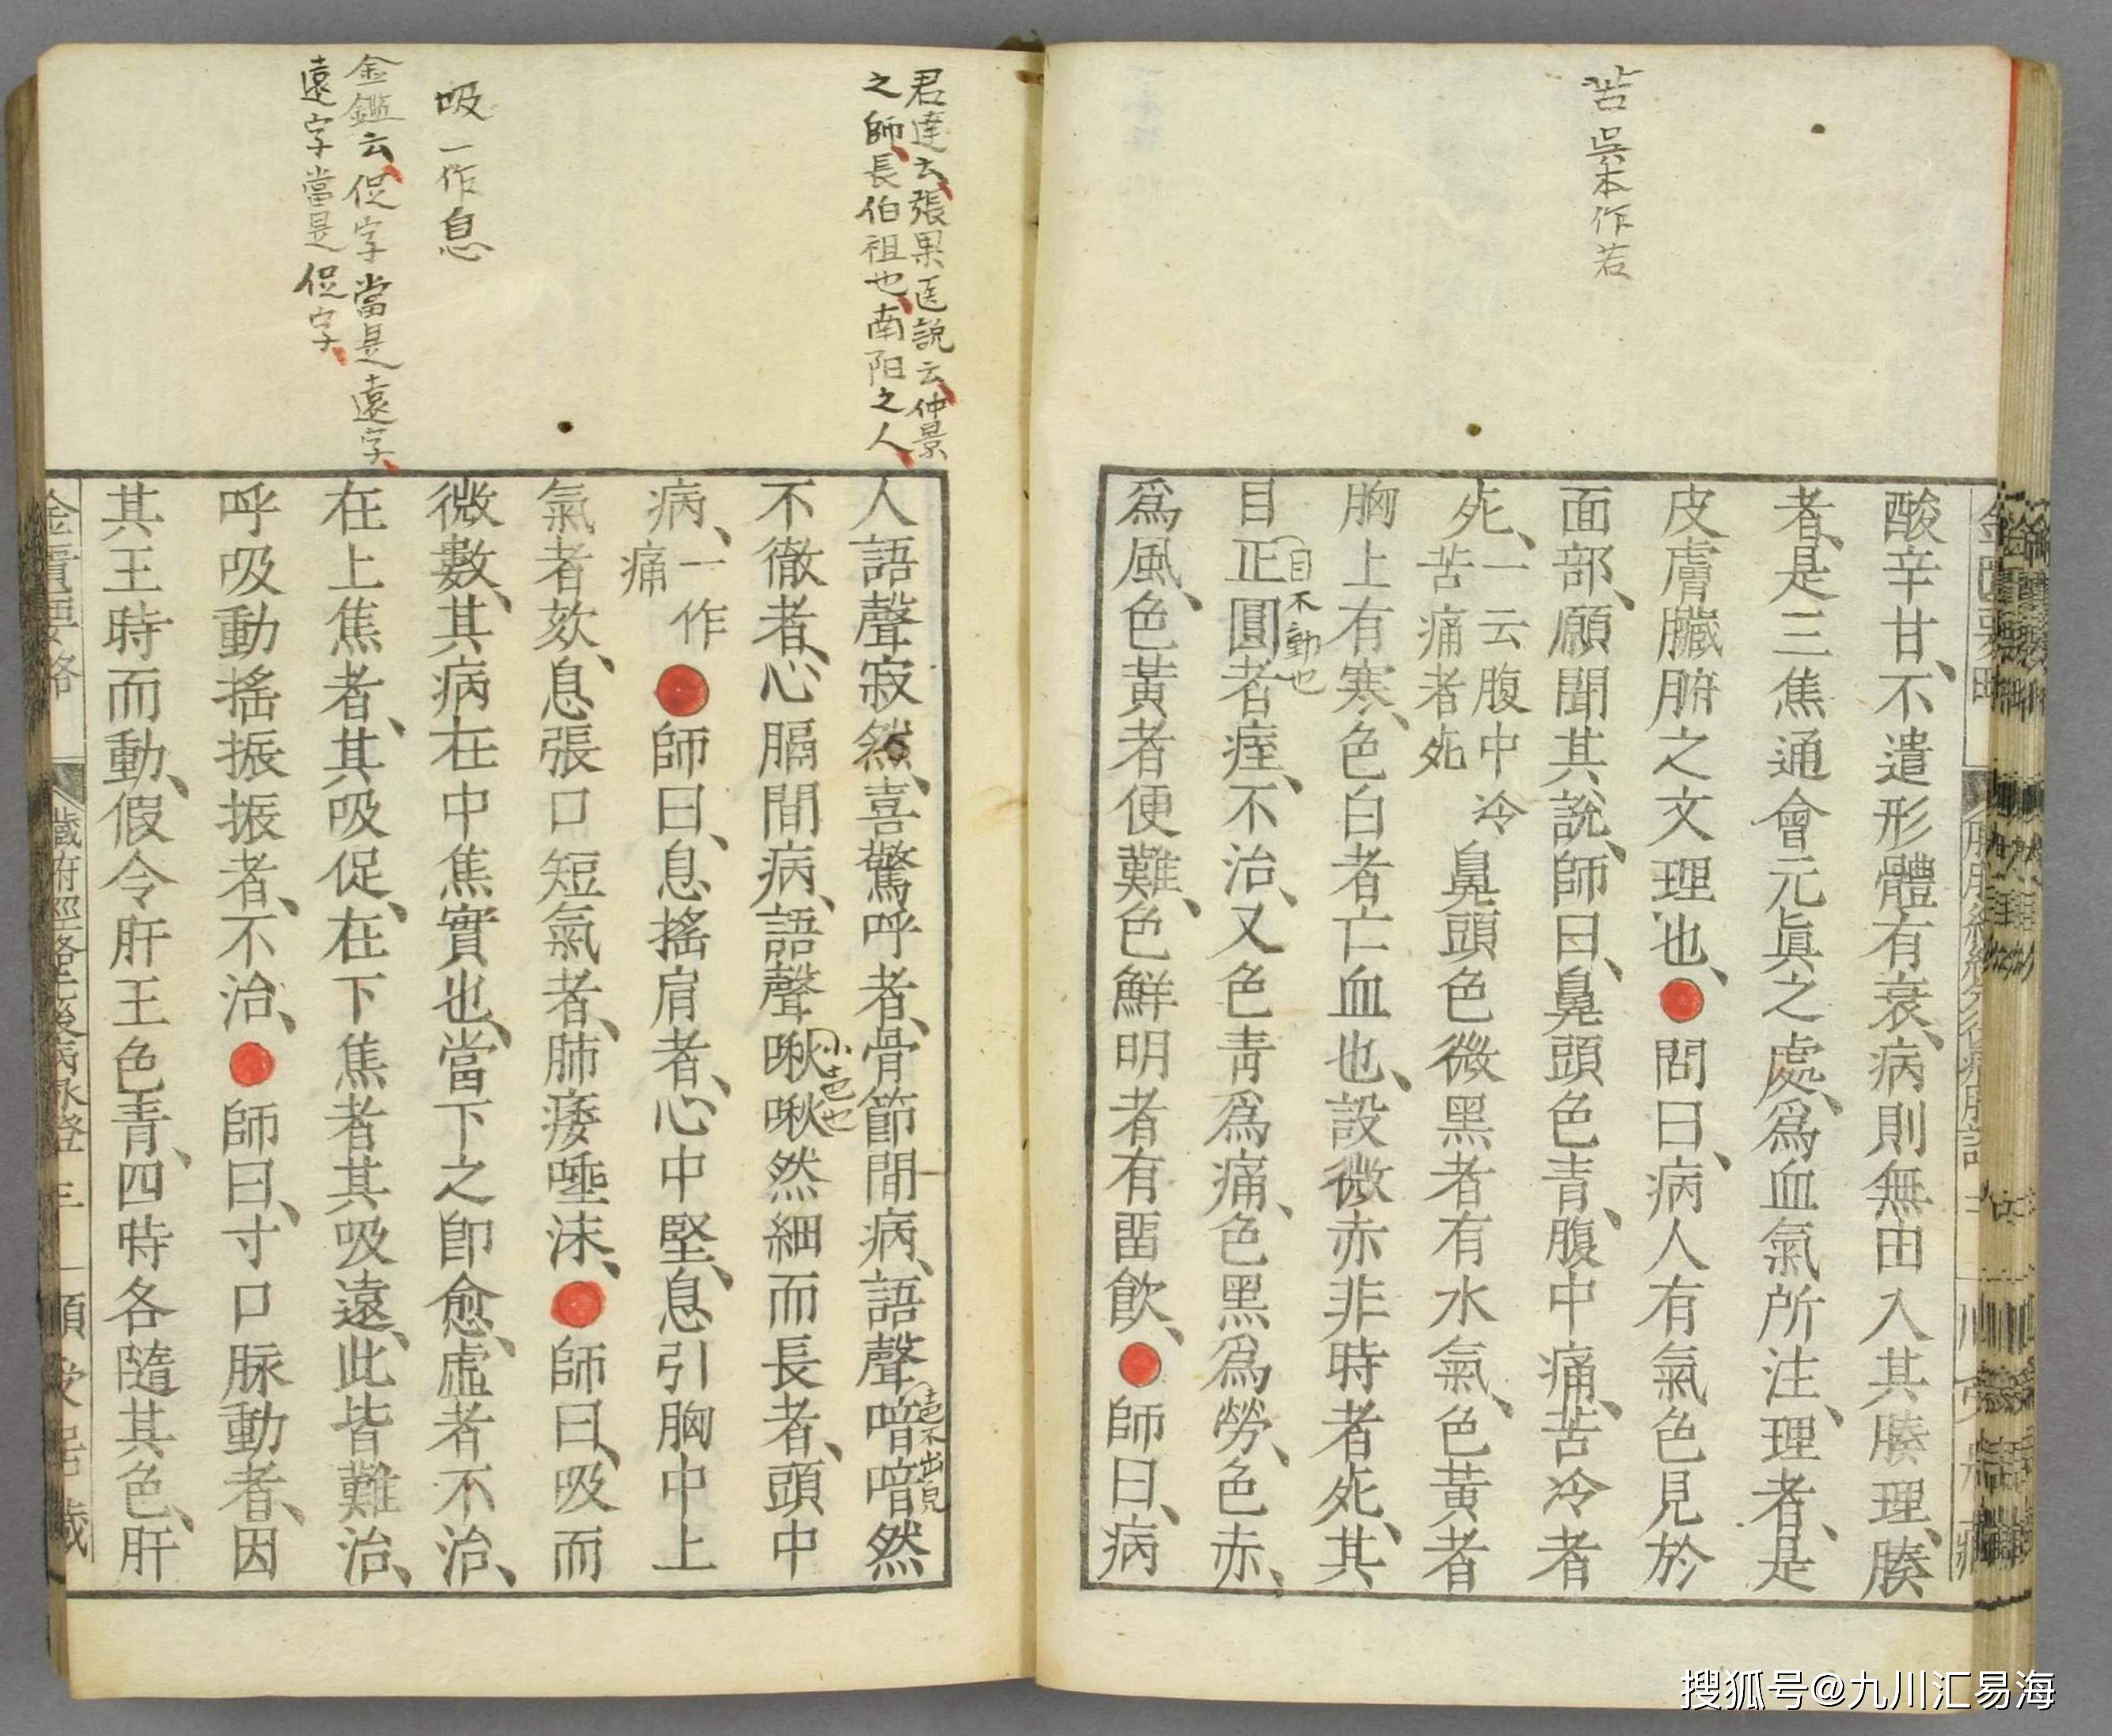 苦吳本作若
酸辛甘、不遣形體有衰、病則無由入其腠理、腠
者、是三焦通會元眞之處、爲血氣所注、理者、是
皮膚臟腑之文理也、●問曰、病人有氣色見於
面部、願聞其說、師曰、鼻頭色青、腹中痛、苦冷者
死、一云腹中冷苦痛者死鼻頭色微黑者有水氣、色黃者
胸上有寒、色白者亡血也、設微赤非時者死、其
目正圓者痓、不治、又色青爲痛、色黑爲勞、色赤、
目不動也
爲風、色黃者便難、色鮮明者有畱飮、●師曰、病
君達云、張果医説云、仲景
之師、長伯祖也、南阳之人、
吸一作息
金鑑云、促字當是遠字、
遠字當是促字、
人語聲寂然、喜驚呼者、骨節間病、語聲喑喑然
不徹者、心膈間病、語聲啾啾然細而長者、頭中
病、一作痛●師曰、息搖肩者、心中堅、息引胸中上
氣者欬、息張口短氣者、肺痿唾沫、●師曰、吸而
微數、其病在中焦實也、當下之卽愈、虛者不治、
在上焦者、其吸促、在下焦者其吸遠、此皆難治、
呼吸動搖振振者、不治、●師曰、寸口脉動者、因
其王時而動、假令肝王色青、四時各隨其色、肝
搜狐号@九川汇易海